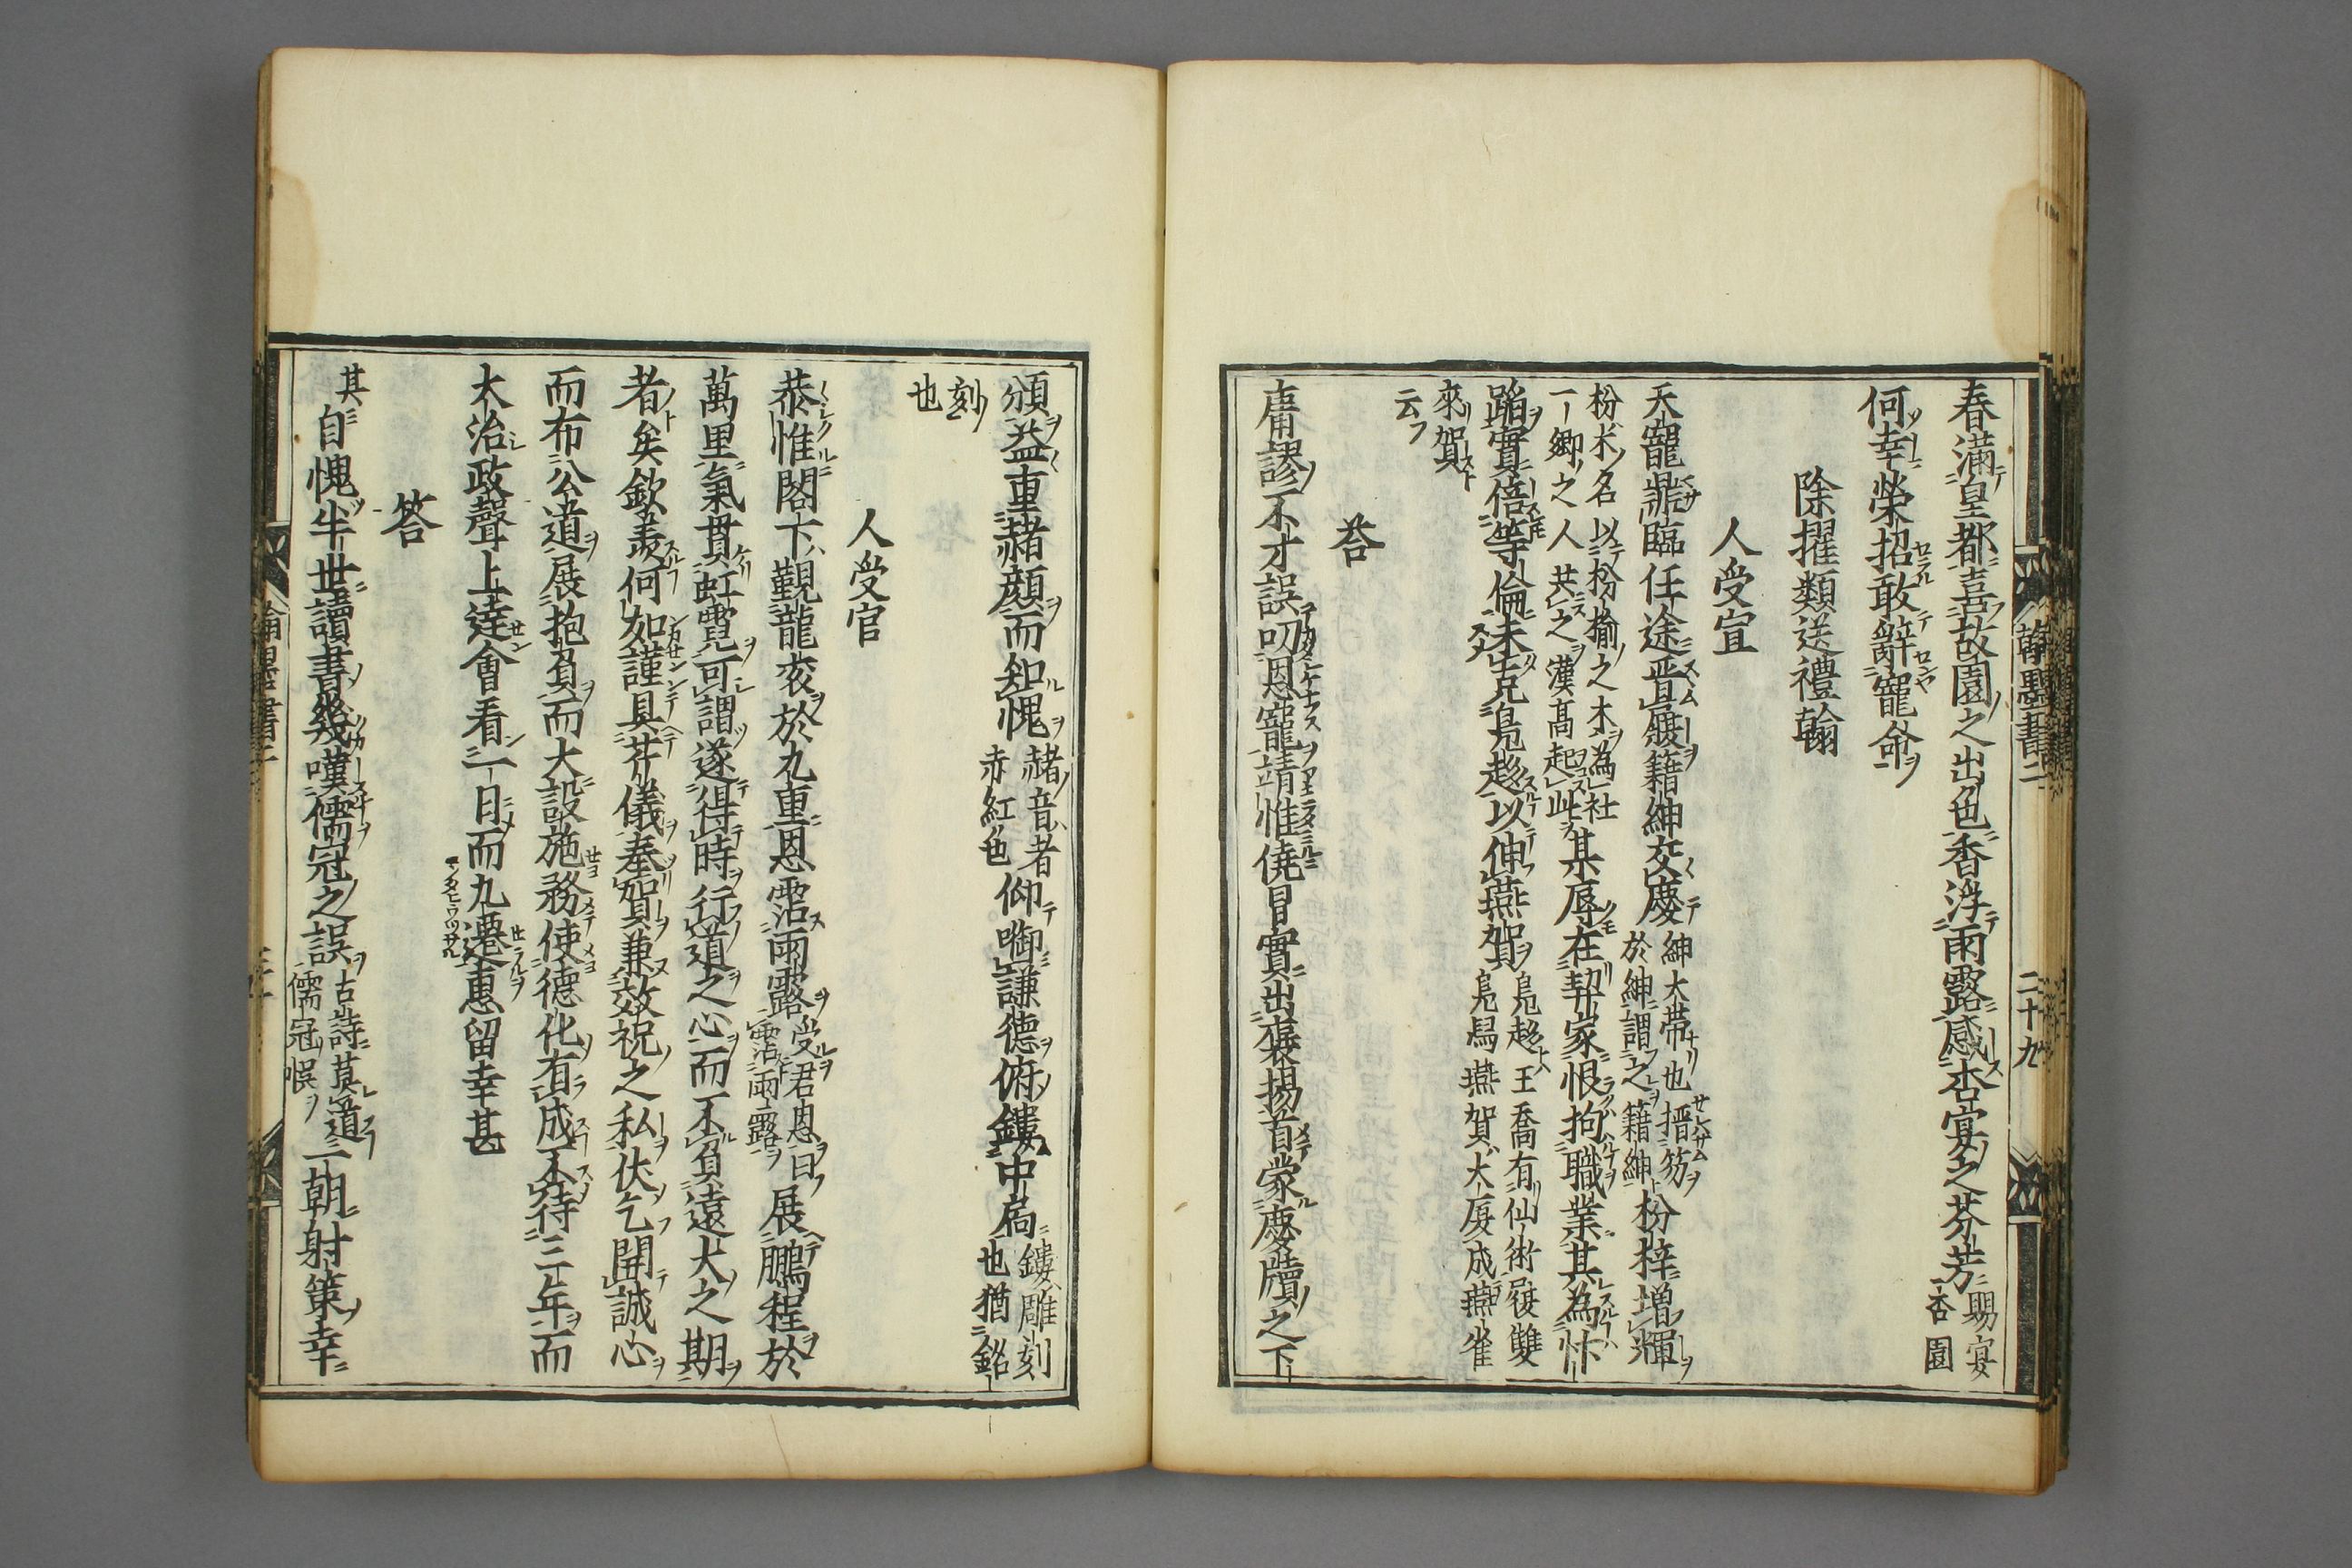 春滿皇都喜故園之出色香浮雨露感杏宴之芬芳賜宴杏園
何幸榮招敢辭寵命
除擢類送禮翰
人受宣
天寵鼎臨任途晋履籍紳交慶紳大帶也搢笏於紳謂之籍紳枌梓增輝
枌木名以枌揄之木為社一鄉之人共之漢高起此某辱在契家恨拘職業其為忭
蹈實倍等倫未克鳧趍以伸燕賀鳧趍王喬有仙術屐雙鳧舄燕賀大厦成燕雀
來賀云
答
膚謬不才誤叨恩寵靖惟僥冒實出褒揚首蒙慶牘之下
翰墨書二
二十九
頒益重赭顏而知愧赭音者赤紅色仰啣謙德俯鏤中扃鏤雕刻也猶銘
刻也
人受官
恭惟閣下覲龍衮於九重恩霑雨露受君恩曰霑雨露展鵬程於
萬里氣貫虹霓可謂遂得時行道之心而不負遠大之期
者矣欽羨何如謹具芹儀奉賀兼效祝之私伏乞開誠心
而布公道展抱負而大設施務使德化有成不待三年而
太治政聲上達會看一日而九遷惠留幸甚
答
其自愧半世讀書幾嘆儒冠之誤古詩儒冠悞莫道一朝射策幸